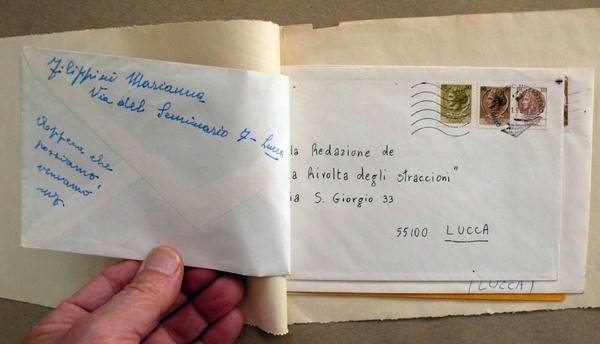 Filippini Marianna
Via del Seminario 7 - Lucca
Appena che
possiamo
veniamo
la Redazione de
a Rivolta degli straccioni"
ia S. Giorgio 33
55100 LUCCA
(LUCCA)